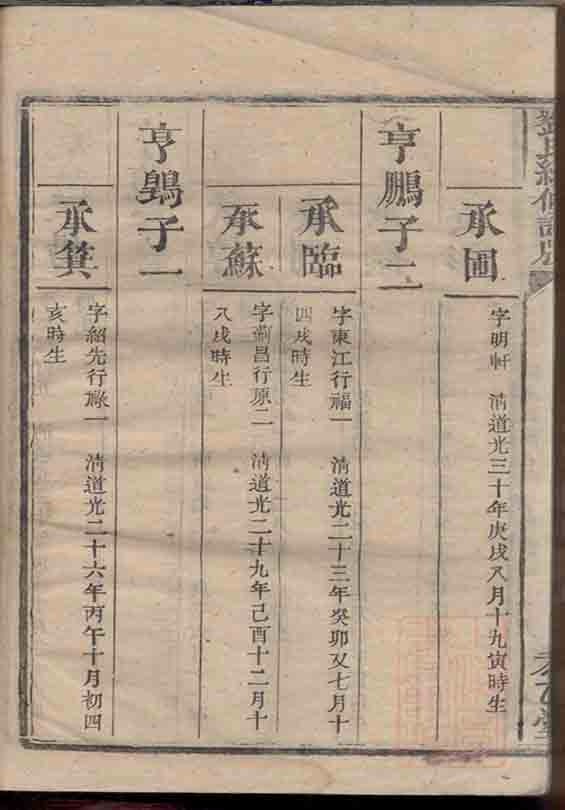 承圃
字明軒 清道光三十年庚戌八月十九寅時生
亨鵬子二
承臨
字東江行福一 清道光二十三年癸卯又七月十
四戌時生
承蘇
字蔚昌行原二 清道光二十九年己酉十二月十
八戌時生
亨鶚子一
承箕
字紹先行祿一 清道光二十六年丙午十月初四
亥時生